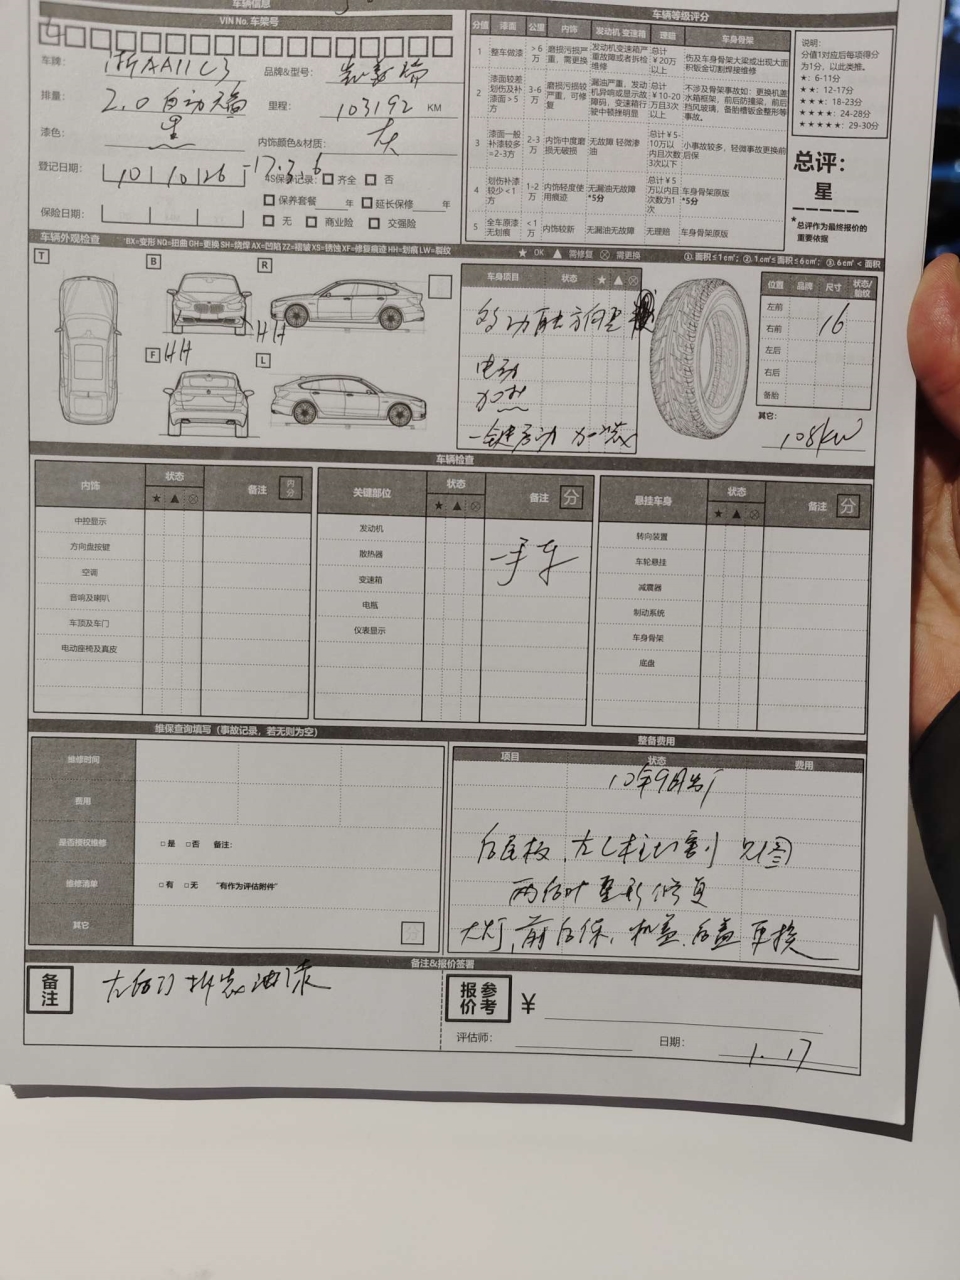 车辆信息
VIN No. 车架号
车牌: 浙AA11C3
品牌&型号: 凯美瑞
排量: 2.0自动
里程: 103192 KM
漆色: 黑
内饰颜色&材质: 灰
登记日期: 10 10 26 -17.3.6
4S保养记录: 齐全 否
保养套餐 年 延长保修 年
保险日期:
无 商业险 交强险
车辆等级评分
分值 漆面 公里 内饰 发动机 变速箱 理赔 车身骨架
1 整车做漆 >6万 磨损污损严重,需更换 发动机变速箱严重故障或者拆检维修 总计¥20万以上 伤及车身骨架大梁或出现大面积钣金切割焊接维修
2 漆面较差划伤及补漆面>5方 3-6万 磨损污损较严重,可修复 漏油严重、发动机异响或显示故障码,变速箱行驶中顿挫明显 总计¥10-20万且3次以上 不涉及骨架事故如:更换机盖水箱框架,前后防撞梁,前后挡风玻璃,备胎槽钣金整形等事故。
3 漆面一般补漆较多=2-3方 2-3万 内饰中度磨损无破损 无故障 轻微渗油 总计¥5-10万以内且次数3次以下 小事故较多,轻微事故更换前后保
4 划伤补漆较少<1方 1-2万 内饰轻度使用痕迹 无漏油无故障*5分 总计¥5万以内且次数为1次 车身骨架原版*5分
5 全车原漆无划痕 <1万 内饰较新 无漏油无故障 无理赔 车身骨架原版
说明:
分值1对应后每项得分为1分,以此类推。
★: 6-11分
★★: 12-17分
★★★: 18-23分
★★★★: 24-28分
★★★★★: 29-30分
总评:
星
*总评作为最终报价的重要依据
车辆外观检查
*BX=变形 NQ=扭曲 GH=更换 SH=烧焊 AX=凹陷 ZZ=褶皱 XS=锈蚀 XF=修复痕迹 HH=划痕 LW=裂纹
★ OK ▲ 需修复 ⊗ 需更换
①. 面积≤1c㎡; ②. 1c㎡≤面积≤6c㎡; ③. 6c㎡<面积
T B R
HH
F HH L
车身项目 状态 ★ ▲ ⊗
多功能方向盘
电动
一键启动 加装
位置 品牌 尺寸 状态/胎纹
左前
右前 16
左后
右后
备胎
其它:
108kW
车辆检查
内饰 状态 ★ ▲ ⊗ 备注 内分
中控显示
方向盘按键
空调
音响及喇叭
车顶及车门
电动座椅及真皮
关键部位 状态 ★ ▲ ⊗ 备注 分
发动机
散热器
变速箱
电瓶
仪表显示
一手车
悬挂车身 状态 ★ ▲ ⊗ 备注 分
转向装置
车轮悬挂
减震器
制动系统
车身骨架
底盘
维保查询填写(事故记录,若无则为空)
维修时间
费用
是否授权维修 □是 □否 备注:
维修清单 □有 □无 "有作为评估附件"
其它 分
整备费用
项目 状态 费用
10年9月出厂
后尾板、左C柱切割 见图
两后叶整形修复
大灯、前后保、机盖、后盖更换
备注&报价签署
备注
左后门拆装油漆
参考报价 ¥
评估师:
日期: 1.17